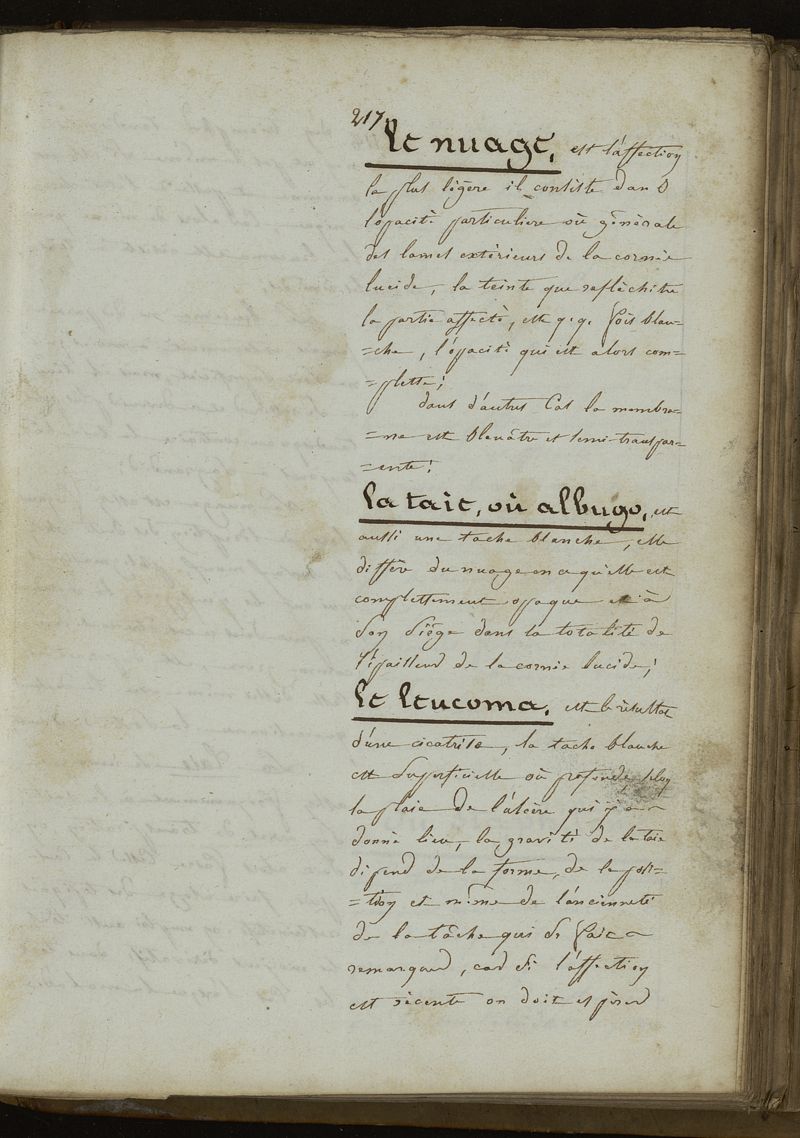 217
Le nuage, est l'affection
la plus légere il consiste dans
l'opacité particuliere où générale
des lames extérieurs de la cornée
lucide, la teinte que refléchitre
la partie affecté, est q.q. fois blan=
=che, l'opacité qui est alors com=
=plette;
dans d'autres Cas la membra=
=ne est bleuâtre et semi-transpar=
=ente;
La taie, où albugo, est
aussi une tache blanche, elle
diffère du nuage en ce qu'elle est
complettement opaque et à
son siége dans la totalité de
l'épaisseur de la cornée lucide;
Le Leucoma, est le résultat
d'une cicatrise, la tache blanche
est superficielle où profonde, selon
la plaie de l'ulcère qui y a
donné lieu, la gravité de la taie
dépend de la forme, de la posi=
=tion et même de l'ancienneté
de la tâche qui se fait
remarquer, car si l'affection
est récente on doit espérer